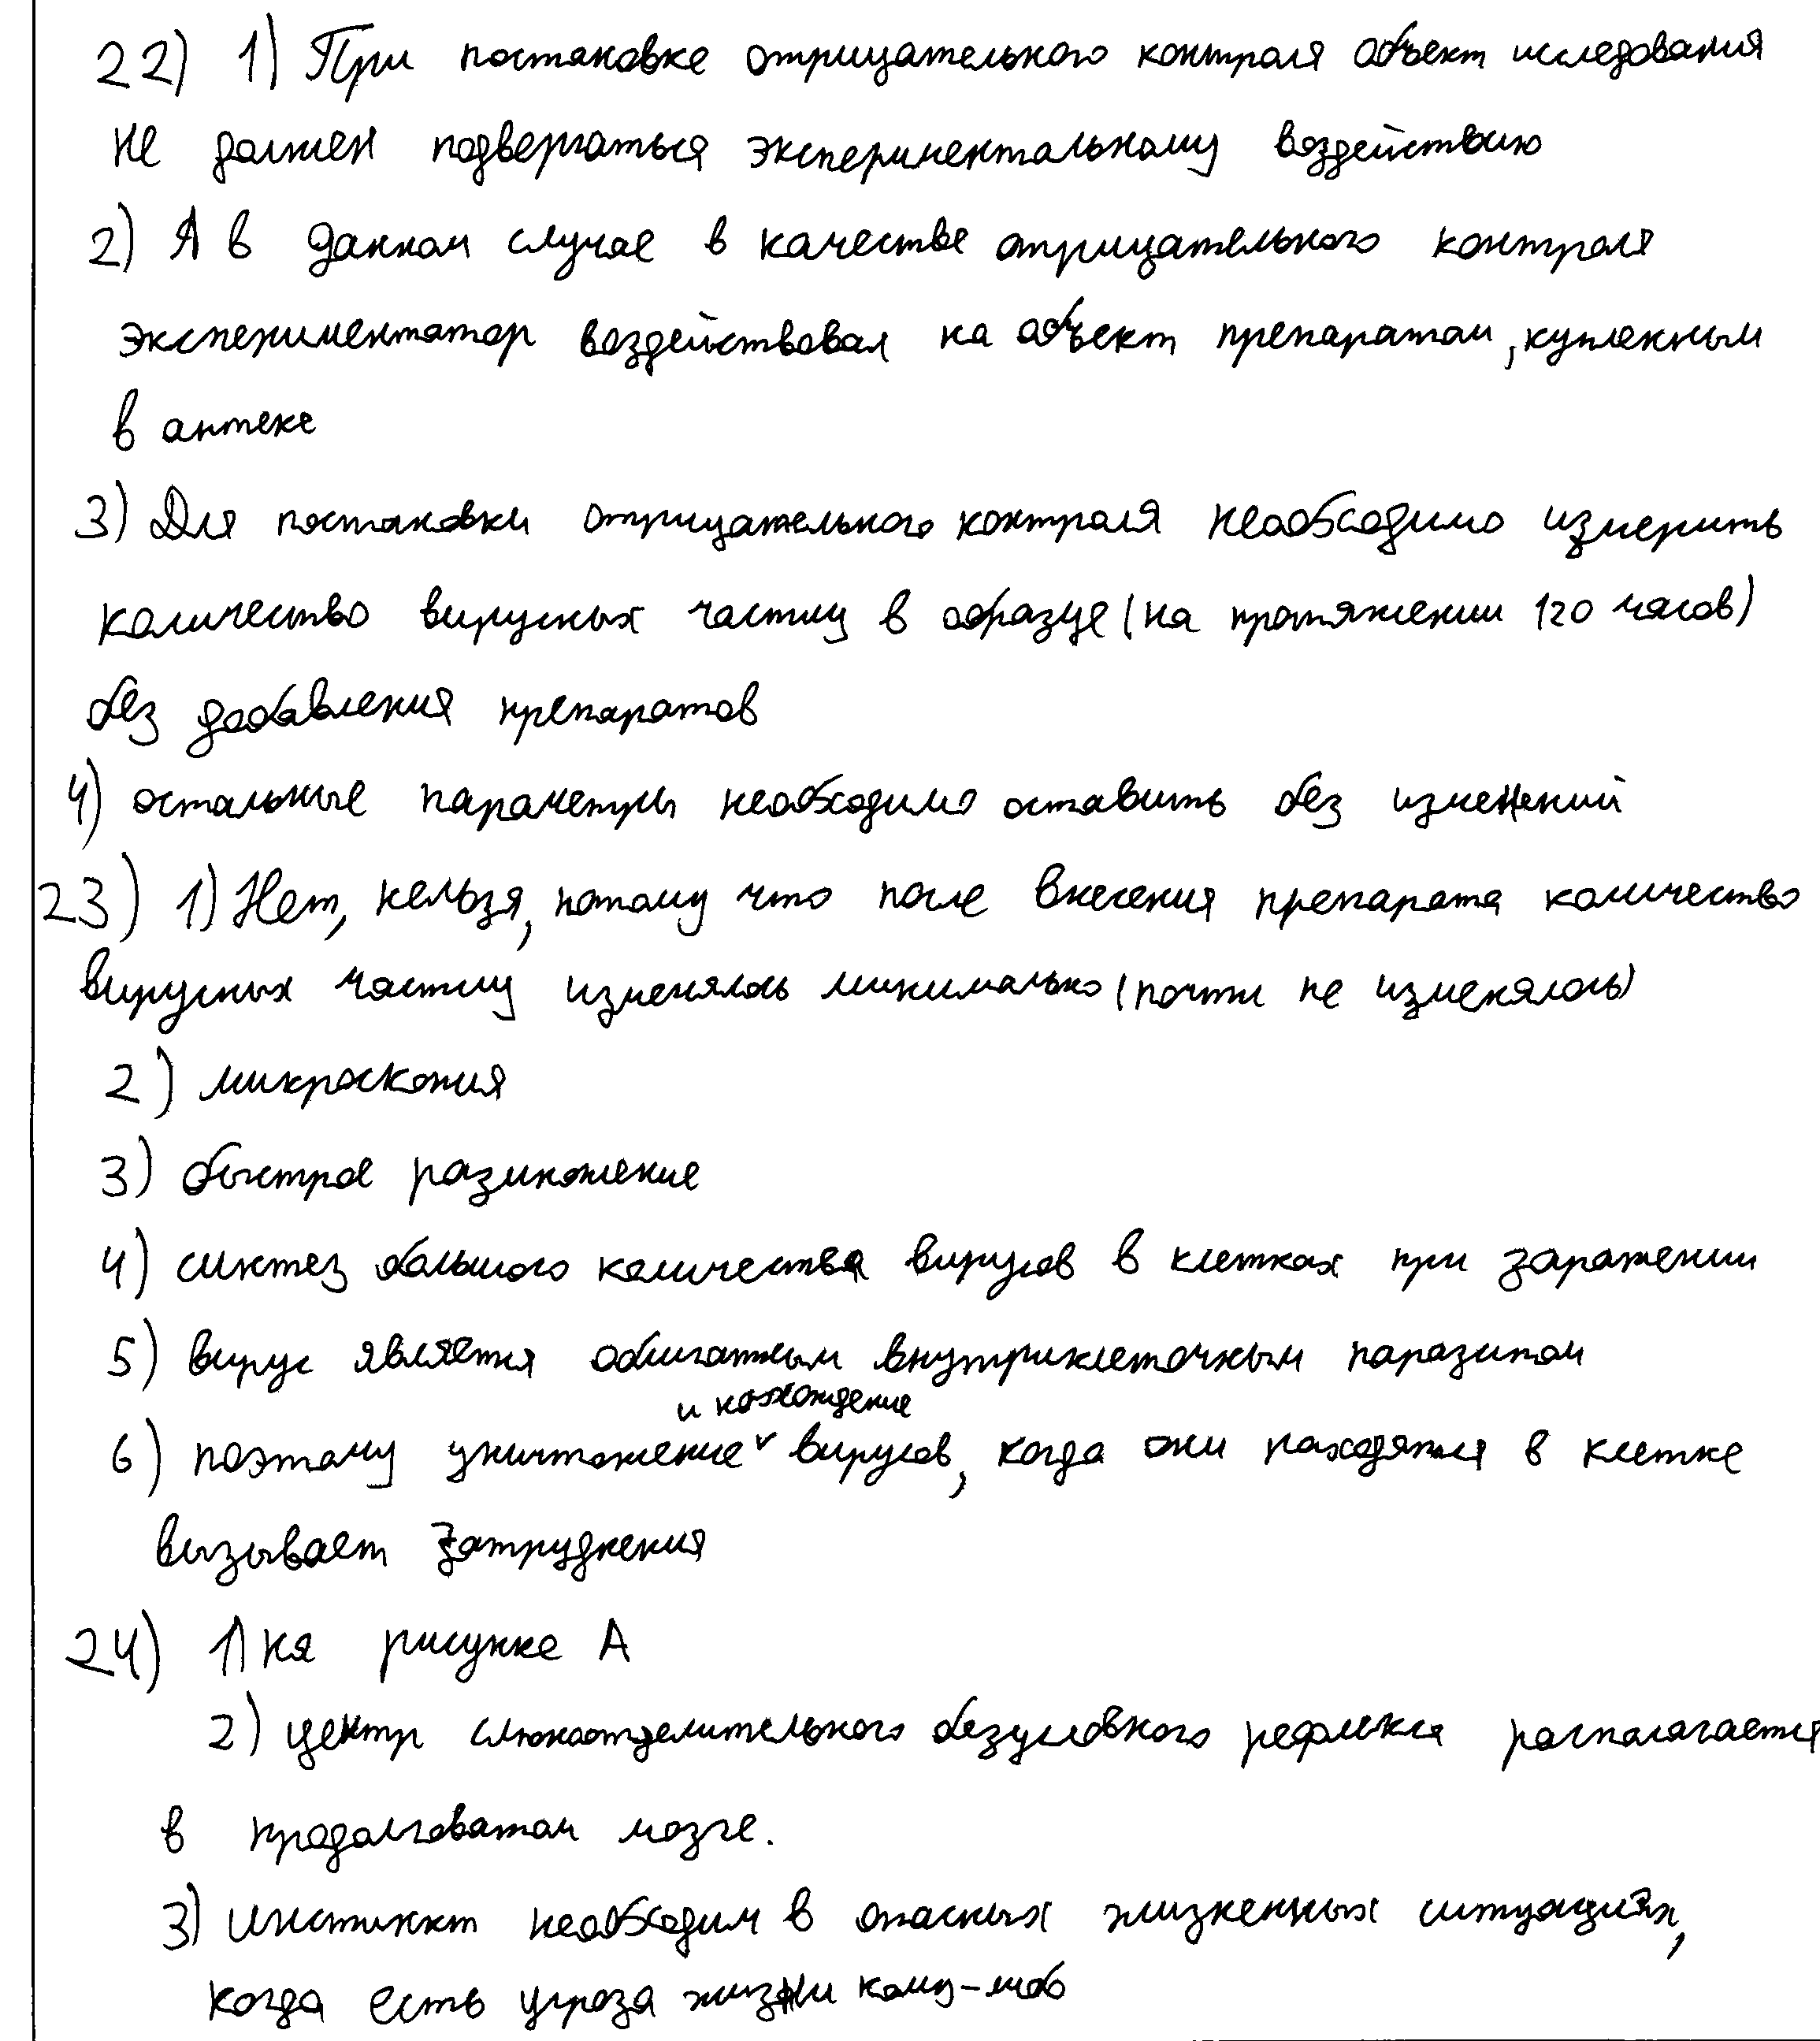 22) 1) При постановке отрицательного контроля объект исследования
не должен подвергаться экспериментальному воздействию
2) А в данном случае в качестве отрицательного контроля
экспериментатор воздействовал на объект препаратом, купленным
в аптеке
3) Для постановки отрицательного контроля необходимо измерить
количество вирусных частиц в образце (на протяжении 120 часов)
без добавления препаратов
4) остальные параметры необходимо оставить без изменений
23) 1) Нет, нельзя, потому что после внесения препарата количество
вирусных частиц изменялось минимально (почти не изменялось)
2) микроскопия
3) быстрое размножение
4) синтез большого количества вирусов в клетках при заражении
5) вирус является облигатным внутриклеточным паразитом
и нахождение
6) поэтому уничтожение вирусов, когда они находятся в клетке
вызывает затруднения
24) 1) на рисунке А
2) центр слюноотделительного безусловного рефлекса располагается
в продолговатом мозге.
3) Инстинкт необходим в опасных жизненных ситуациях,
когда есть угроза жизни кому-либо